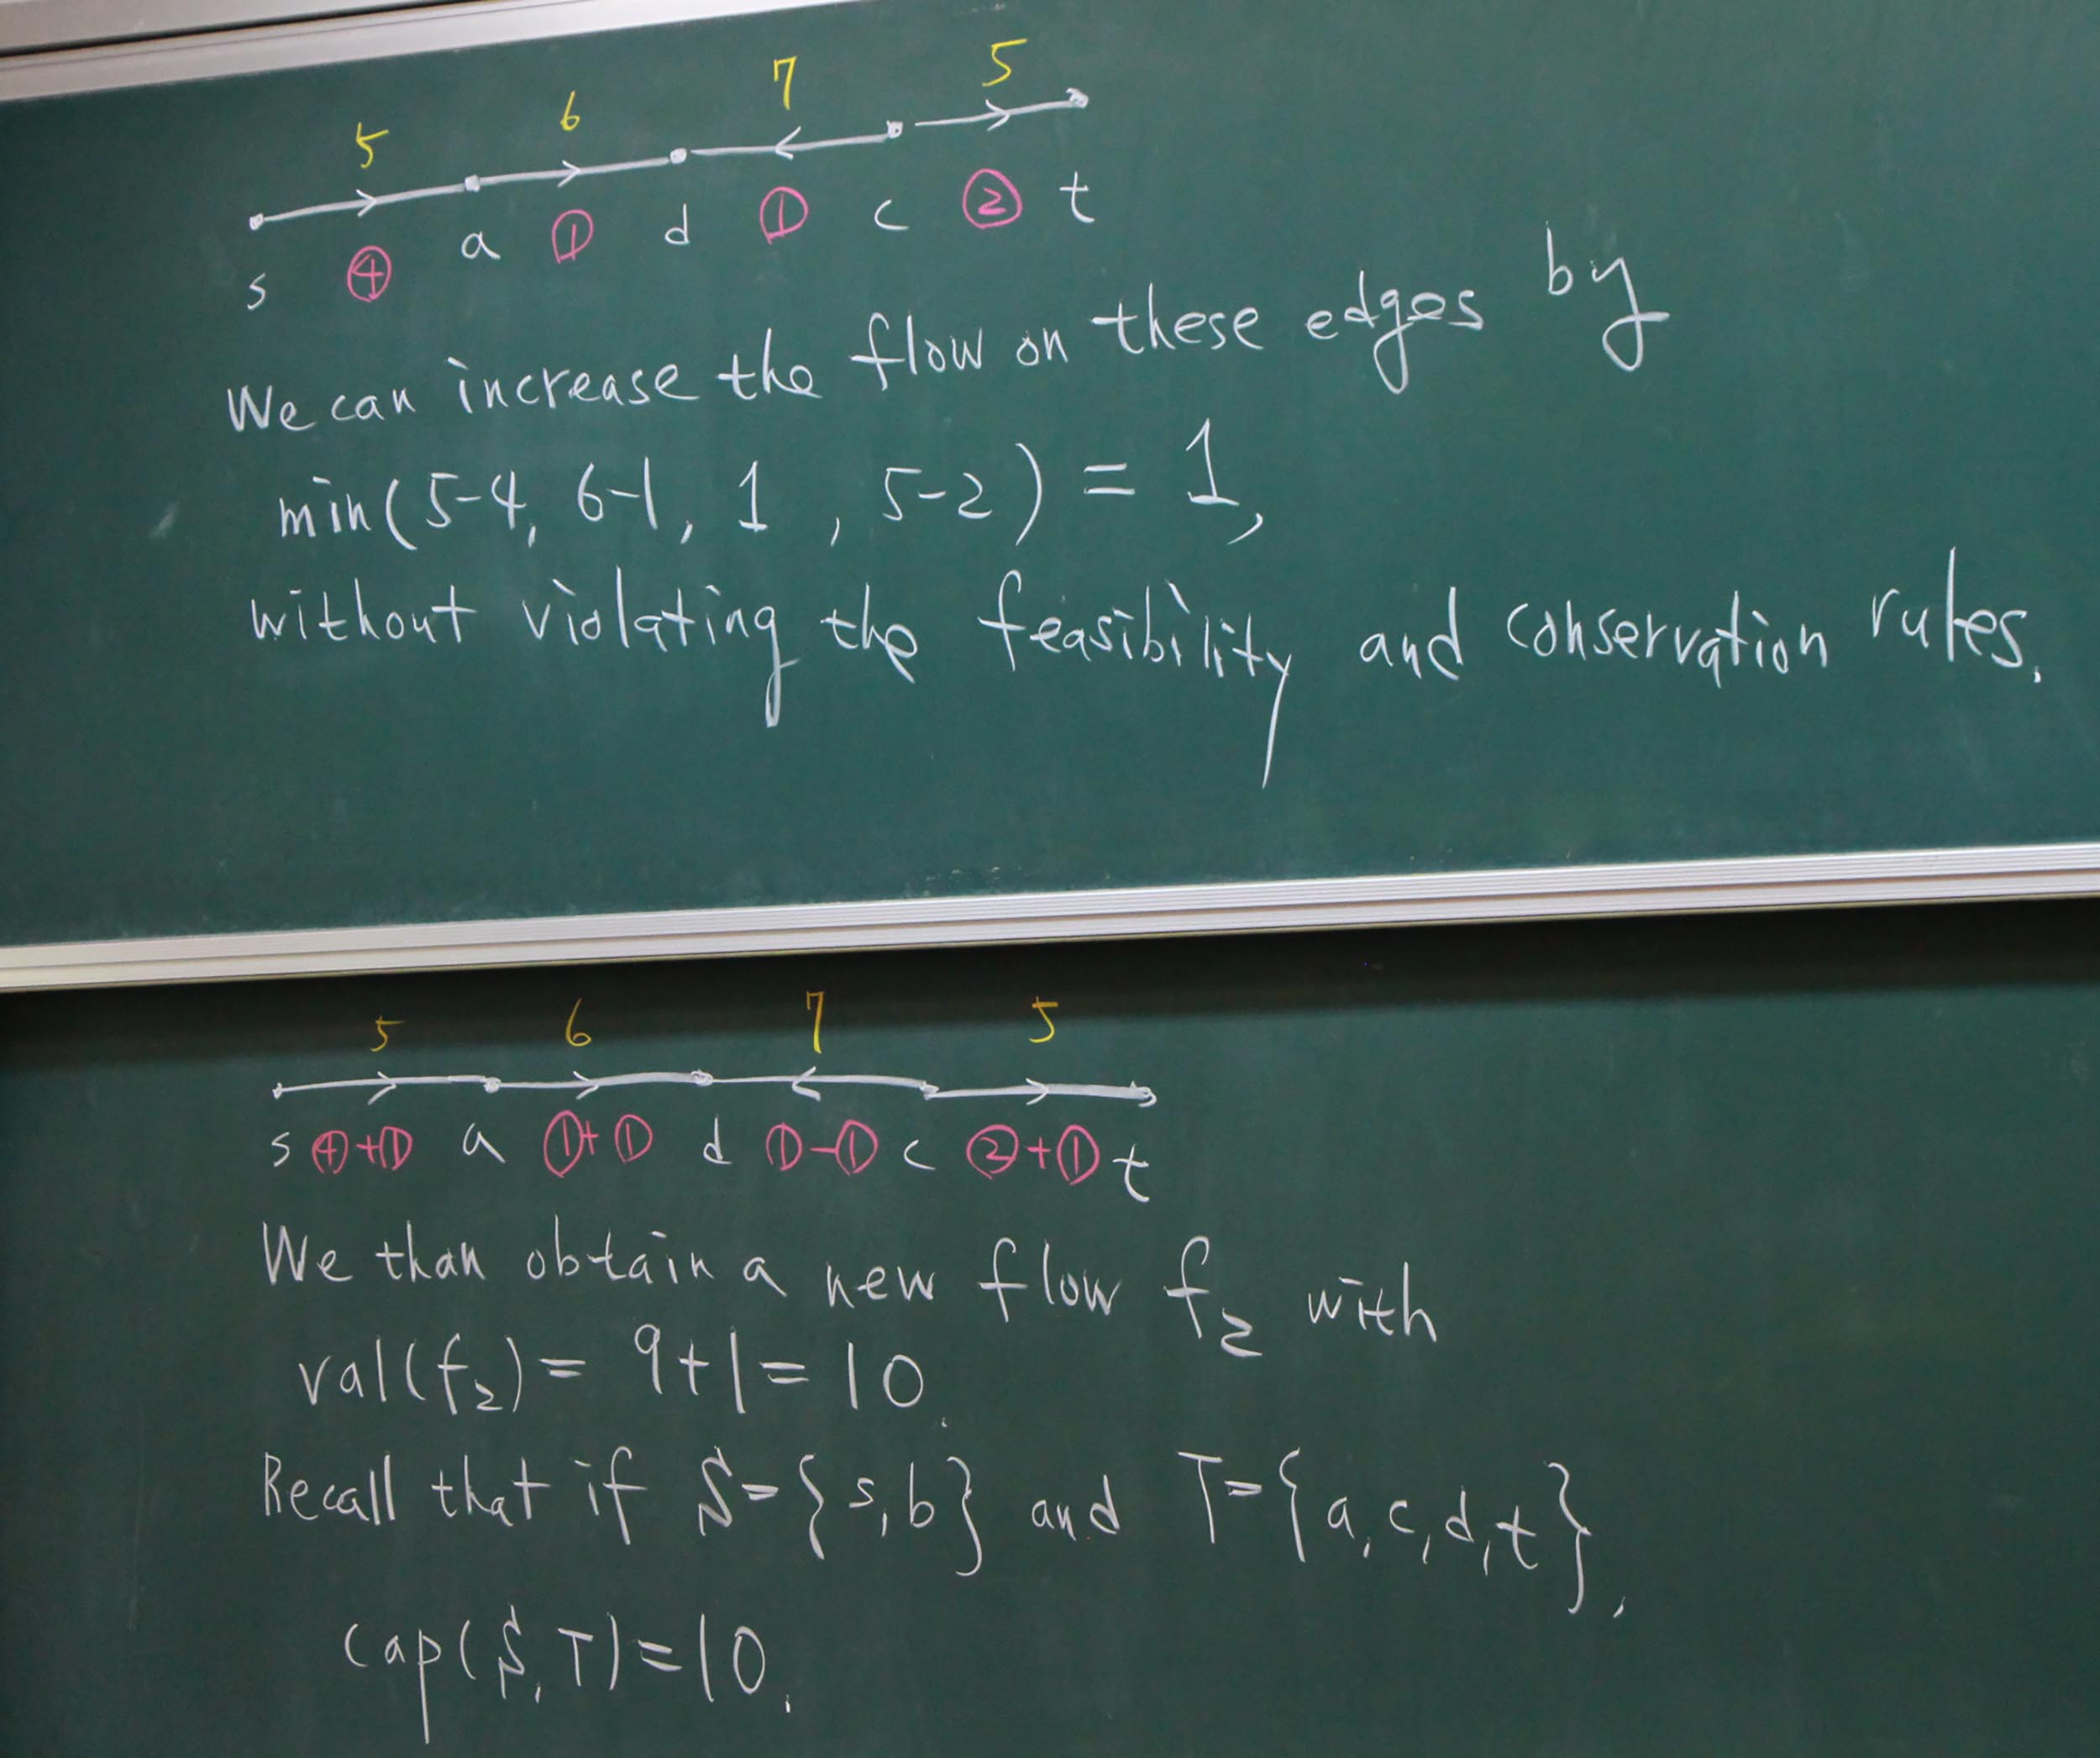 5 6 7 5
s ④ a ① d ① c ② t
We can increase the flow on these edges by
min(5-4, 6-1, 1 , 5-2) = 1,
without violating the feasibility and conservation rules.
5 6 7 5
s ④+① a ①+① d ①-① c ②+① t
We than obtain a new flow f₂ with
val(f₂) = 9+1 = 10.
Recall that if S={s,b} and T={a,c,d,t},
cap(S,T)=10.